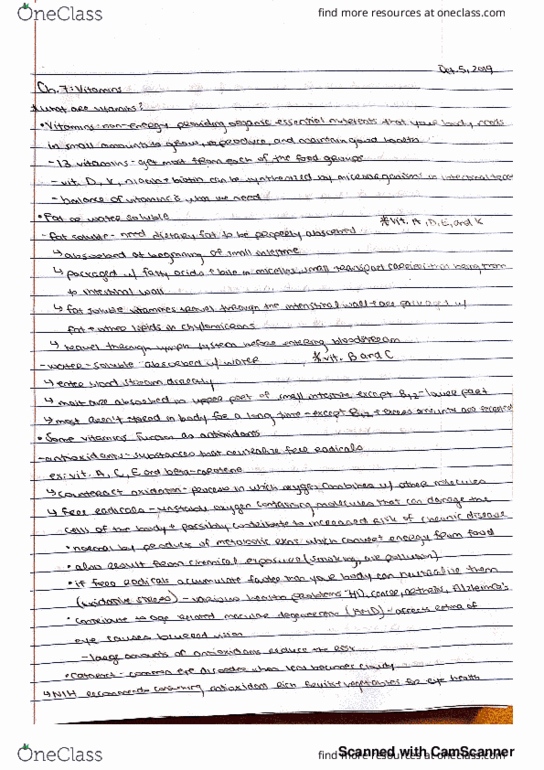 OneClass
find more resources at oneclass.com
Oct. 5, 2019
Ch. 7: Vitamins
*What are vitamins?
• Vitamins: non-energy providing organic essential nutrients that your body needs
in small amounts to grow, reproduce, and maintain good health
- 13 vitamins - get most from each of the food groups
- vit. D, K, niacin + biotin can be synthesized by microorganisms in intestinal tract
- balance of vitamins is what we need
• Fat or water soluble
- fat soluble - need dietary fat to be properly absorbed *vit. A, D, E, and K
↳ absorbed at beginning of small intestine
↳ packaged w/ fatty acids + bile in micelles, small transport carriers that bring them
to intestinal wall
↳ fat soluble vitamins travel through the intestinal wall + are packaged w/
fat + other lipids in chylomicrons
↳ travel through lymph system before entering bloodstream
- water-soluble absorbed w/ water *vit. B and C
↳ enter blood stream directly
↳ most are absorbed in upper part of small intestine except B12 - lower part
↳ most aren't stored in body for a long time - except B12 + excess amounts are excreted
• Some vitamins function as antioxidants
- antioxidants - substances that neutralize free radicals
ex: vit. A, C, E and beta-carotene
↳ counteract oxidation - process in which oxygen combines w/ other molecules
↳ free radicals - unstable oxygen containing molecules that can damage the
cells of the body + possibly contribute to increased risk of chronic disease
• normal by product of metabolic rxns which convert energy from food
• also result from chemical exposure (smoking, air pollution)
• if free radicals accumulate faster than your body can neutralize them
(oxidative stress) - various health problems - HD, cancer, arthritis, Alzheimer's
• contribute to age related macular degeneration (AMD) - affects retina of
eye causes blurred vision
- large amounts of antioxidants reduce the risk
• cataract - common eye disorder when lens becomes cloudy
↳ NIH recommends consuming antioxidant rich fruits + vegetables for eye health
OneClass
find more resources at oneclass.com
Scanned with CamScanner